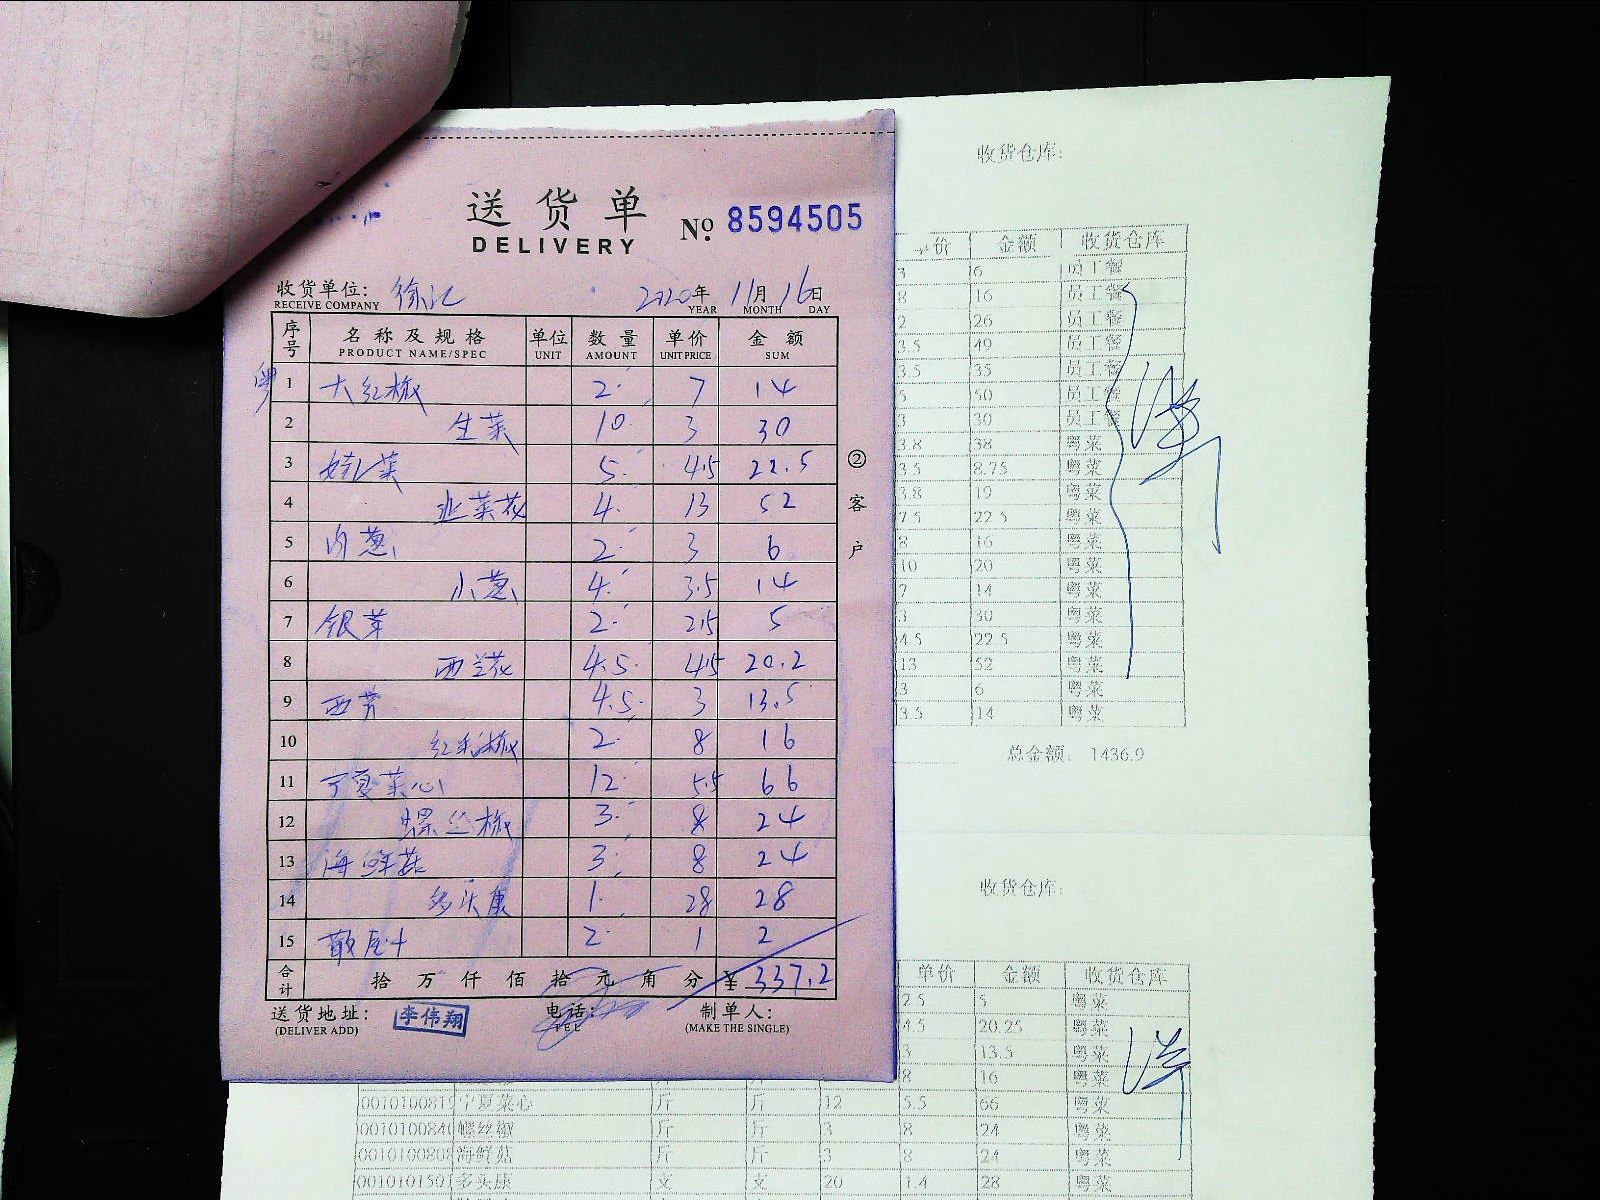 送货单
DELIVERY
No. 8594505
收货单位: 徐记 2020年 11月 16日
RECEIVE COMPANY YEAR MONTH DAY
序号 名称及规格 单位 数量 单价 金额
PRODUCT NAME/SPEC UNIT AMOUNT UNIT PRICE SUM
粤
1 大红椒 2 7 14
2 生菜 10 3 30
3 娃菜 5 4.5 22.5
4 韭菜花 4 13 52
5 肉葱 2 3 6
6 小葱 4 3.5 14
7 银芽 2 2.5 5
8 西兰花 4.5 4.5 20.2
9 西芹 4.5 3 13.5
10 红彩椒 2 8 16
11 宁夏菜心 12 5.5 66
12 螺丝椒 3 8 24
13 海鲜菇 3 8 24
14 多头康 1 28 28
15 2 1 2
合计 拾万仟佰拾元角分 ¥ 337.2
送货地址: 李伟翔 电话: 制单人:
(DELIVER ADD) TEL (MAKE THE SINGLE)
②客户
收货仓库:
单价 金额 收货仓库
3 6 员工餐
8 16 员工餐
2 26 员工餐
3.5 49 员工餐
3.5 35 员工餐
5 50 员工餐
3 30 员工餐
3.8 38 粤菜
3.5 8.75 粤菜
3.8 19 粤菜
7.5 22.5 粤菜
8 16 粤菜
10 20 粤菜
7 14 粤菜
3 30 粤菜
4.5 22.5 粤菜
13 52 粤菜
3 6 粤菜
3.5 14 粤菜
总金额: 1436.9
收货仓库:
单价 金额 收货仓库
2.5 5 粤菜
4.5 20.25 粤菜
3 13.5 粤菜
8 16 粤菜
宁夏菜心 斤 斤 12 5.5 66 粤菜
螺丝椒 斤 斤 3 8 24 粤菜
海鲜菇 斤 斤 3 8 24 粤菜
多头康 支 支 20 1.4 28 粤菜